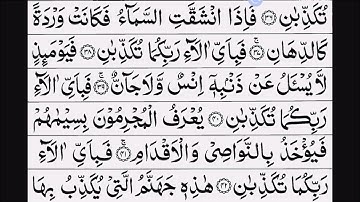 تُكَذِّبٰنِ ﴿۳۶﴾ فَاِذَا انْشَقَّتِ السَّمَآءُ فَكَانَتْ وَرْدَةً
كَالدِّهَانِ ﴿۳۷﴾ فَبِاَيِّ اٰلَآءِ رَبِّكُمَا تُكَذِّبٰنِ ﴿۳۸﴾ فَيَوْمَئِذٍ
لَّا يُسْـَٔلُ عَنْ ذَنْۢبِهٖٓ اِنْسٌ وَّلَا جَآنٌّ ﴿۳۹﴾ فَبِاَيِّ اٰلَآءِ
رَبِّكُمَا تُكَذِّبٰنِ ﴿۴۰﴾ يُعْرَفُ الْمُجْرِمُوْنَ بِسِيْمٰهُمْ
فَيُؤْخَذُ بِالنَّوَاصِيْ وَالْاَقْدَامِ ﴿۴۱﴾ فَبِاَيِّ اٰلَآءِ
رَبِّكُمَا تُكَذِّبٰنِ ﴿۴۲﴾ هٰذِهٖ جَهَنَّمُ الَّتِيْ يُكَذِّبُ بِهَا